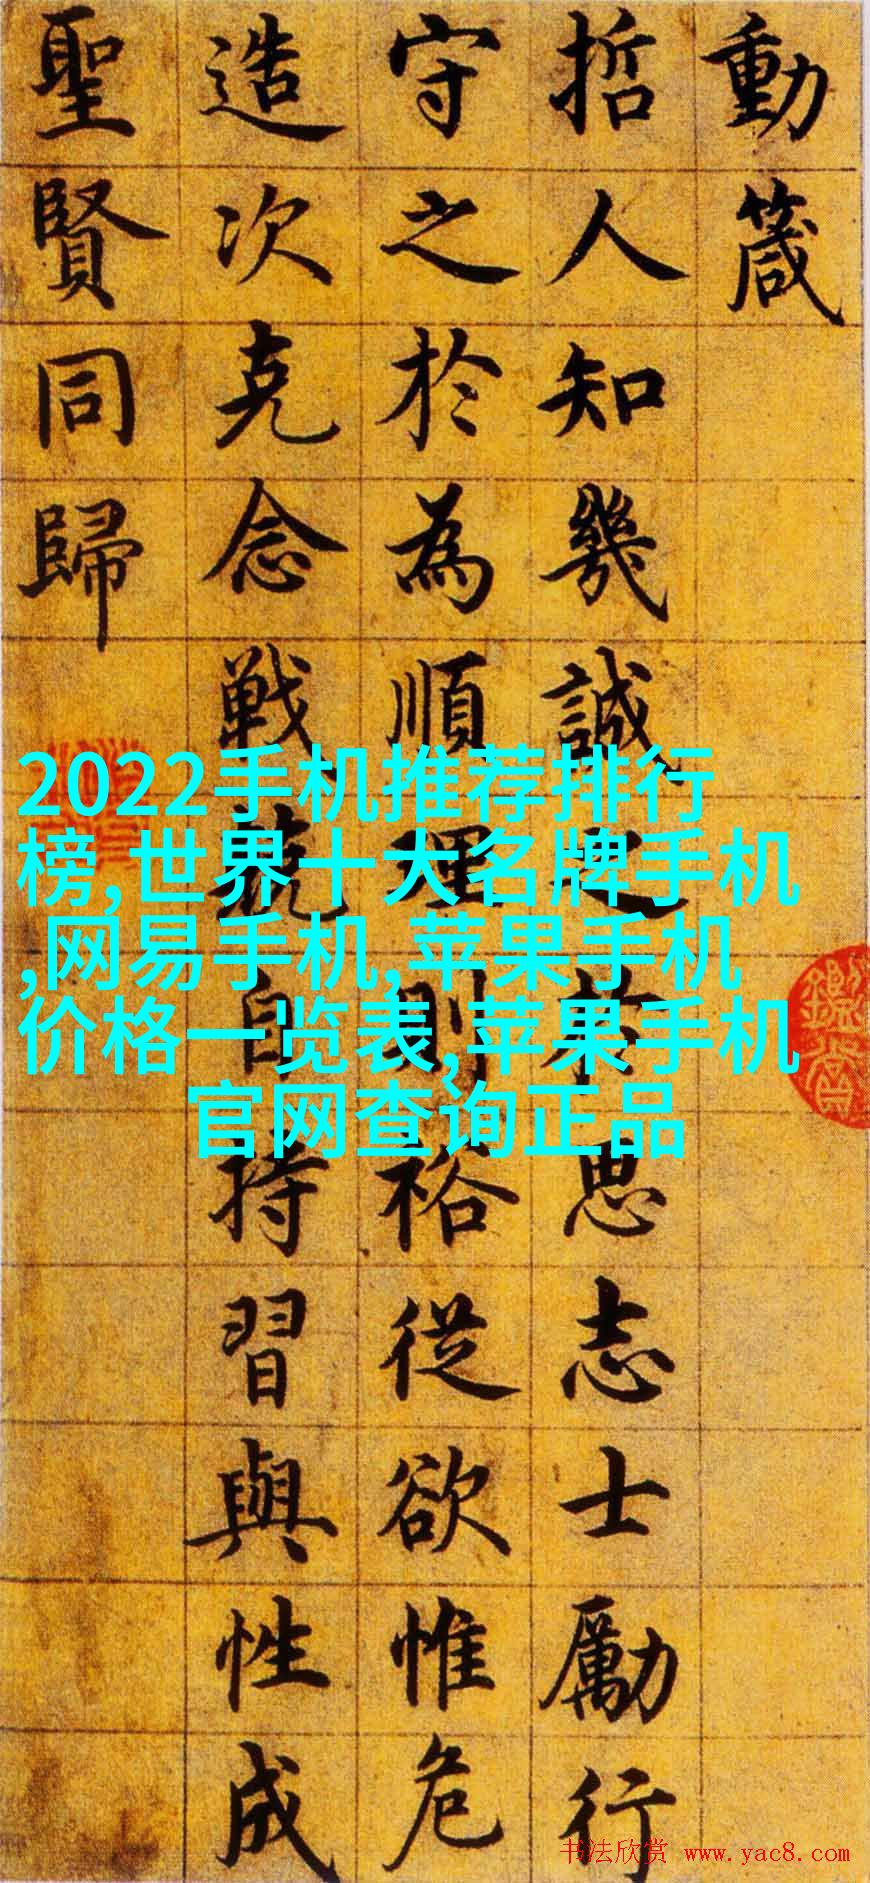 動箴
哲人知幾誠之於思志士勵行
守之於為順理則裕從欲惟危
造次克念戰兢自持習與性成
聖賢同歸
2022手机推荐排行
榜,世界十大名牌手机
,网易手机,苹果手机
价格一览表,苹果手机
官网查询正品
书法欣赏 www.yac8.com